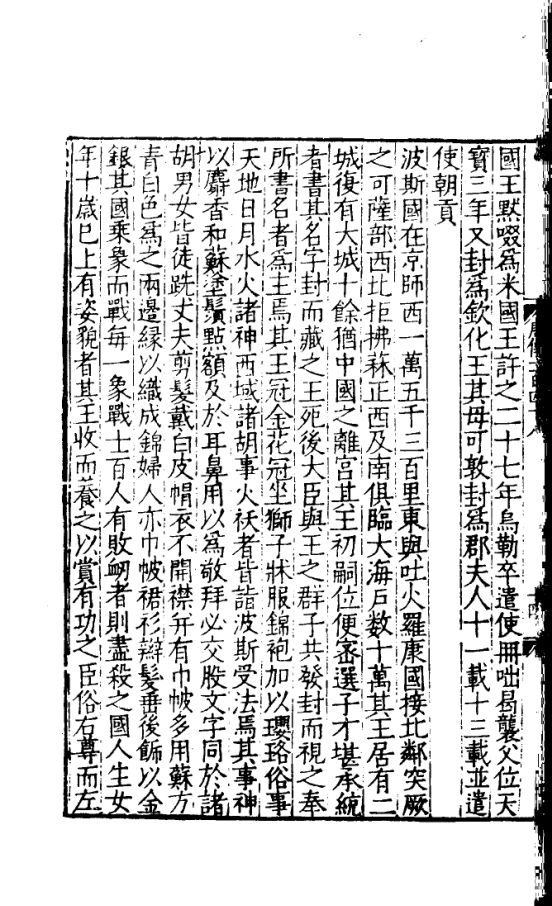 國王默啜爲米國王許之二十七年烏勒卒遣使冊咄曷襲父位天
寳三年又封爲欽化王其母可敦封爲郡夫人十一載十三載並遣
使朝貢
波斯國在京師西一萬五千三百里東與吐火羅康國接北鄰突厥
之可薩部西北拒拂菻正西及南俱臨大海戸數十萬其王居有二
城復有大城十餘猶中國之離宮其王初嗣位便宻選子才堪承統
者書其名字封而藏之王死後大臣與王之群子共發封而視之奉
所書名者爲主焉其王冠金花冠坐獅子牀服錦袍加以瓔珞俗事
天地日月水火諸神西域諸胡事火祅者皆詣波斯受法焉其事神
以麝香和蘇塗鬚點額及於耳鼻用以爲敬拜必交股文字同於諸
胡男女皆徒跣丈夫剪髮戴白皮帽衣不開襟并有巾帔多用蘇方
青白色爲之兩邊緣以織成錦婦人亦巾帔裙衫辮髮垂後飾以金
銀其國乗象而戰每一象戰士百人有敗衂者則盡殺之國人生女
年十歳巳上有姿貌者其王收而養之以賞有功之臣俗右尊而左